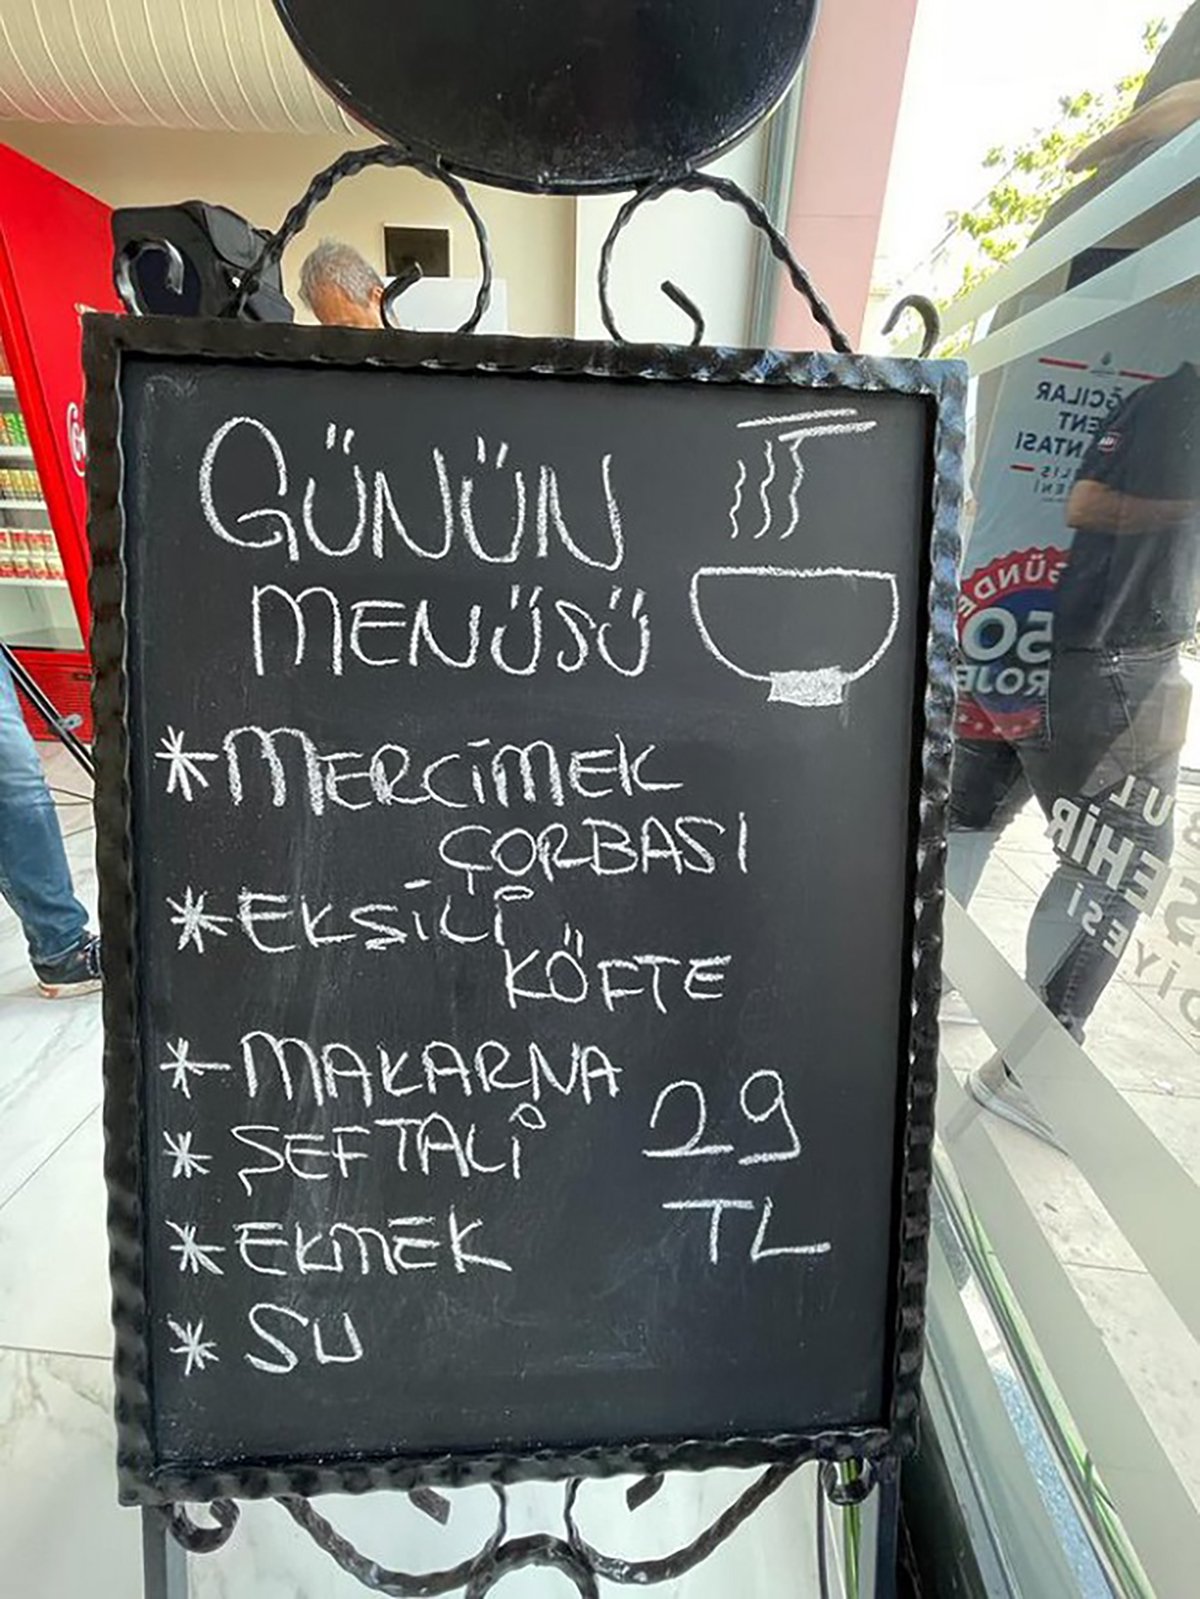 GÜNÜN
MENÜSÜ
*MERCİMEK
ÇORBASI
*EKŞİLİ
KÖFTE
*MAKARNA
*ŞEFTALİ
*EKMEK
*SU
29
TL
AĞCILAR
ENT
NTASI
GÜNDE
50
PROJE
UL
ŞEHİR